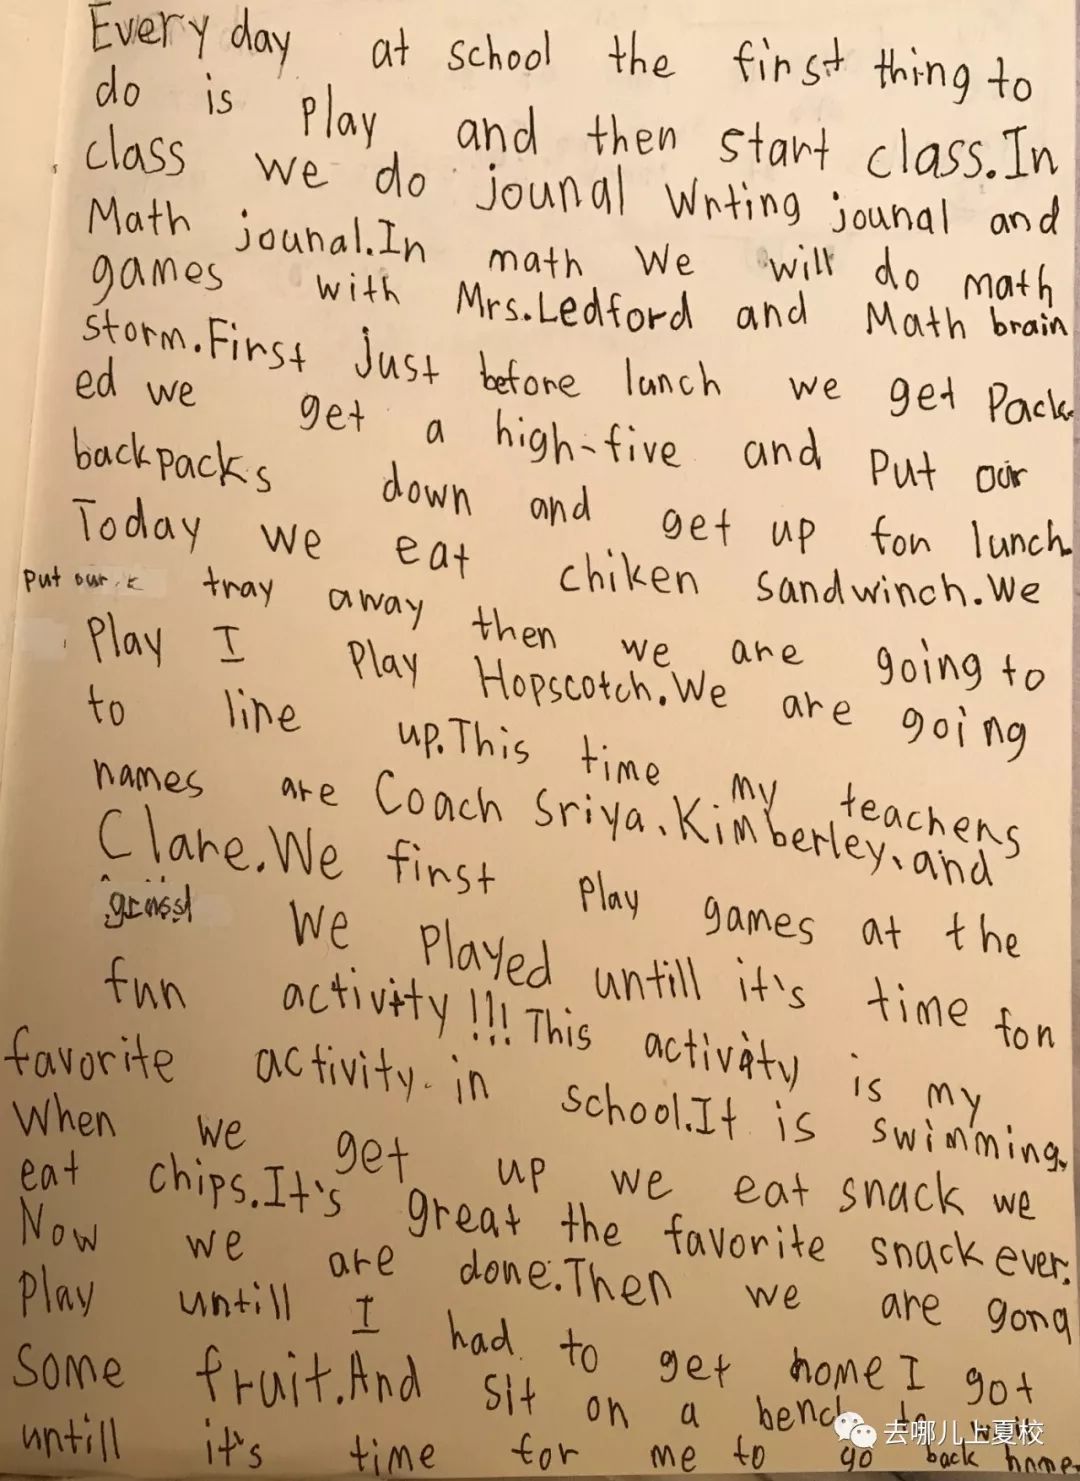 Every day at school the first thing to
do is play and then start class.In
class we do jounal Writing jounal and
Math jounal.In math We will do math
games with Mrs.Ledford and Math brain
storm.First just before lunch we get Pack
ed we get a high-five and Put our
backpacks down and get up for lunch.
Today we eat chiken sandwinch.We
Put our tray away then we are going to
Play I Play Hopscotch.We are going
to line up.This time my teachers
names are Coach Sriya、Kimberley、and
Clare.We first Play games at the
We Played untill it's time for
fun activity!!!This activity is my
favorite activity in school.It is swimming.
When we get up we eat snack we
eat chips.It's great the favorite snack ever.
Now we are done.Then we are gona
Play untill I had to get home I got
Some fruit.And sit on a bench to wait
untill it's time for me to go back home.
去哪儿上夏校